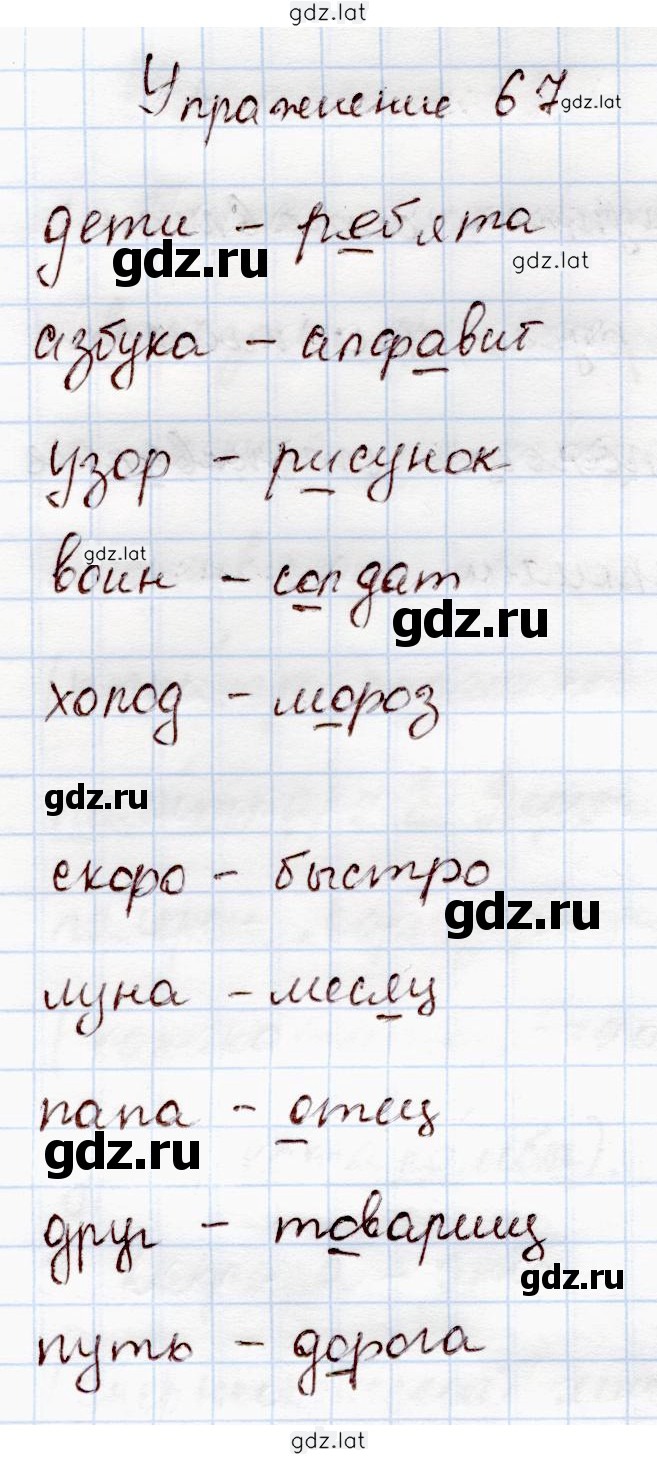 gdz.lat
Упражнение 67
gdz.lat
дети – ребята
gdz.ru
gdz.lat
азбука – алфавит
узор – рисунок
gdz.lat
воин – солдат
gdz.ru
холод – мороз
gdz.ru
скоро – быстро
gdz.ru
луна – месяц
папа – отец
gdz.ru
друг – товарищ
gdz.ru
путь – дорога
gdz.lat